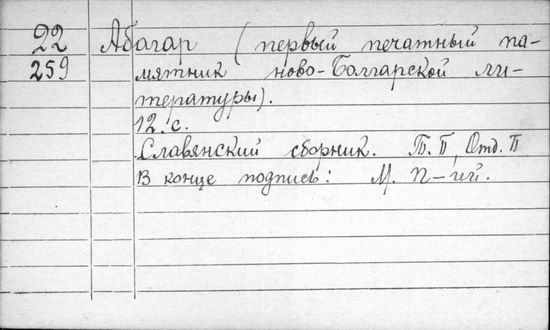 22 Абагар (первый печатный па-
259 мятник ново-Болгарской ли-
тературы).
12.с.
Славянский сборник. Т. П, Отд. П
В конце подпись: М. П-ий.